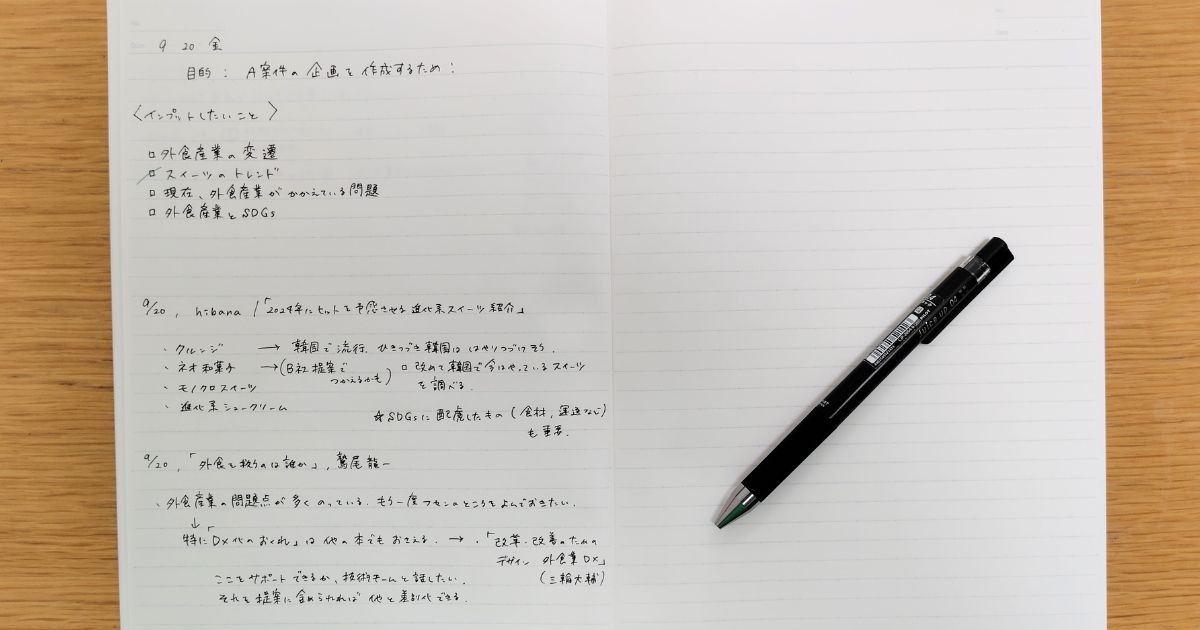 9 20 金
目的: A案件の企画を作成するため:
〈インプットしたいこと〉
□ 外食産業の変遷
□ スイーツのトレンド
□ 現在、外食産業がかかえている問題
□ 外食産業とSDGs
9/20, hibana /「2024年にヒットを予感させる進化系スイーツ紹介」
・クルンジ → 韓国で流行、ひきつづき韓国ははやりつづけそう.
・ネオ和菓子 →(B社提案でつかえるかも) □ 改めて韓国で今はやっているスイーツを調べる.
・モノクロスイーツ
・進化系シュークリーム
☆SDGsに配慮したもの(食材、運送など)
も重要.
9/20,「外食を救うのは誰か」, 鷲尾龍一
・外食産業の問題点が多くのっている. もう一度フセンのところをよんでおきたい.
↓
特に「DX化のおくれ」は他の本でもおさえる. → ・「改革・改善のための
デザイン 外食業DX」
(三輪大輔)
ここをサポートできるか、技術チームと話したい.
それを提案に含められれば他と差別化できる.
Juice up 04